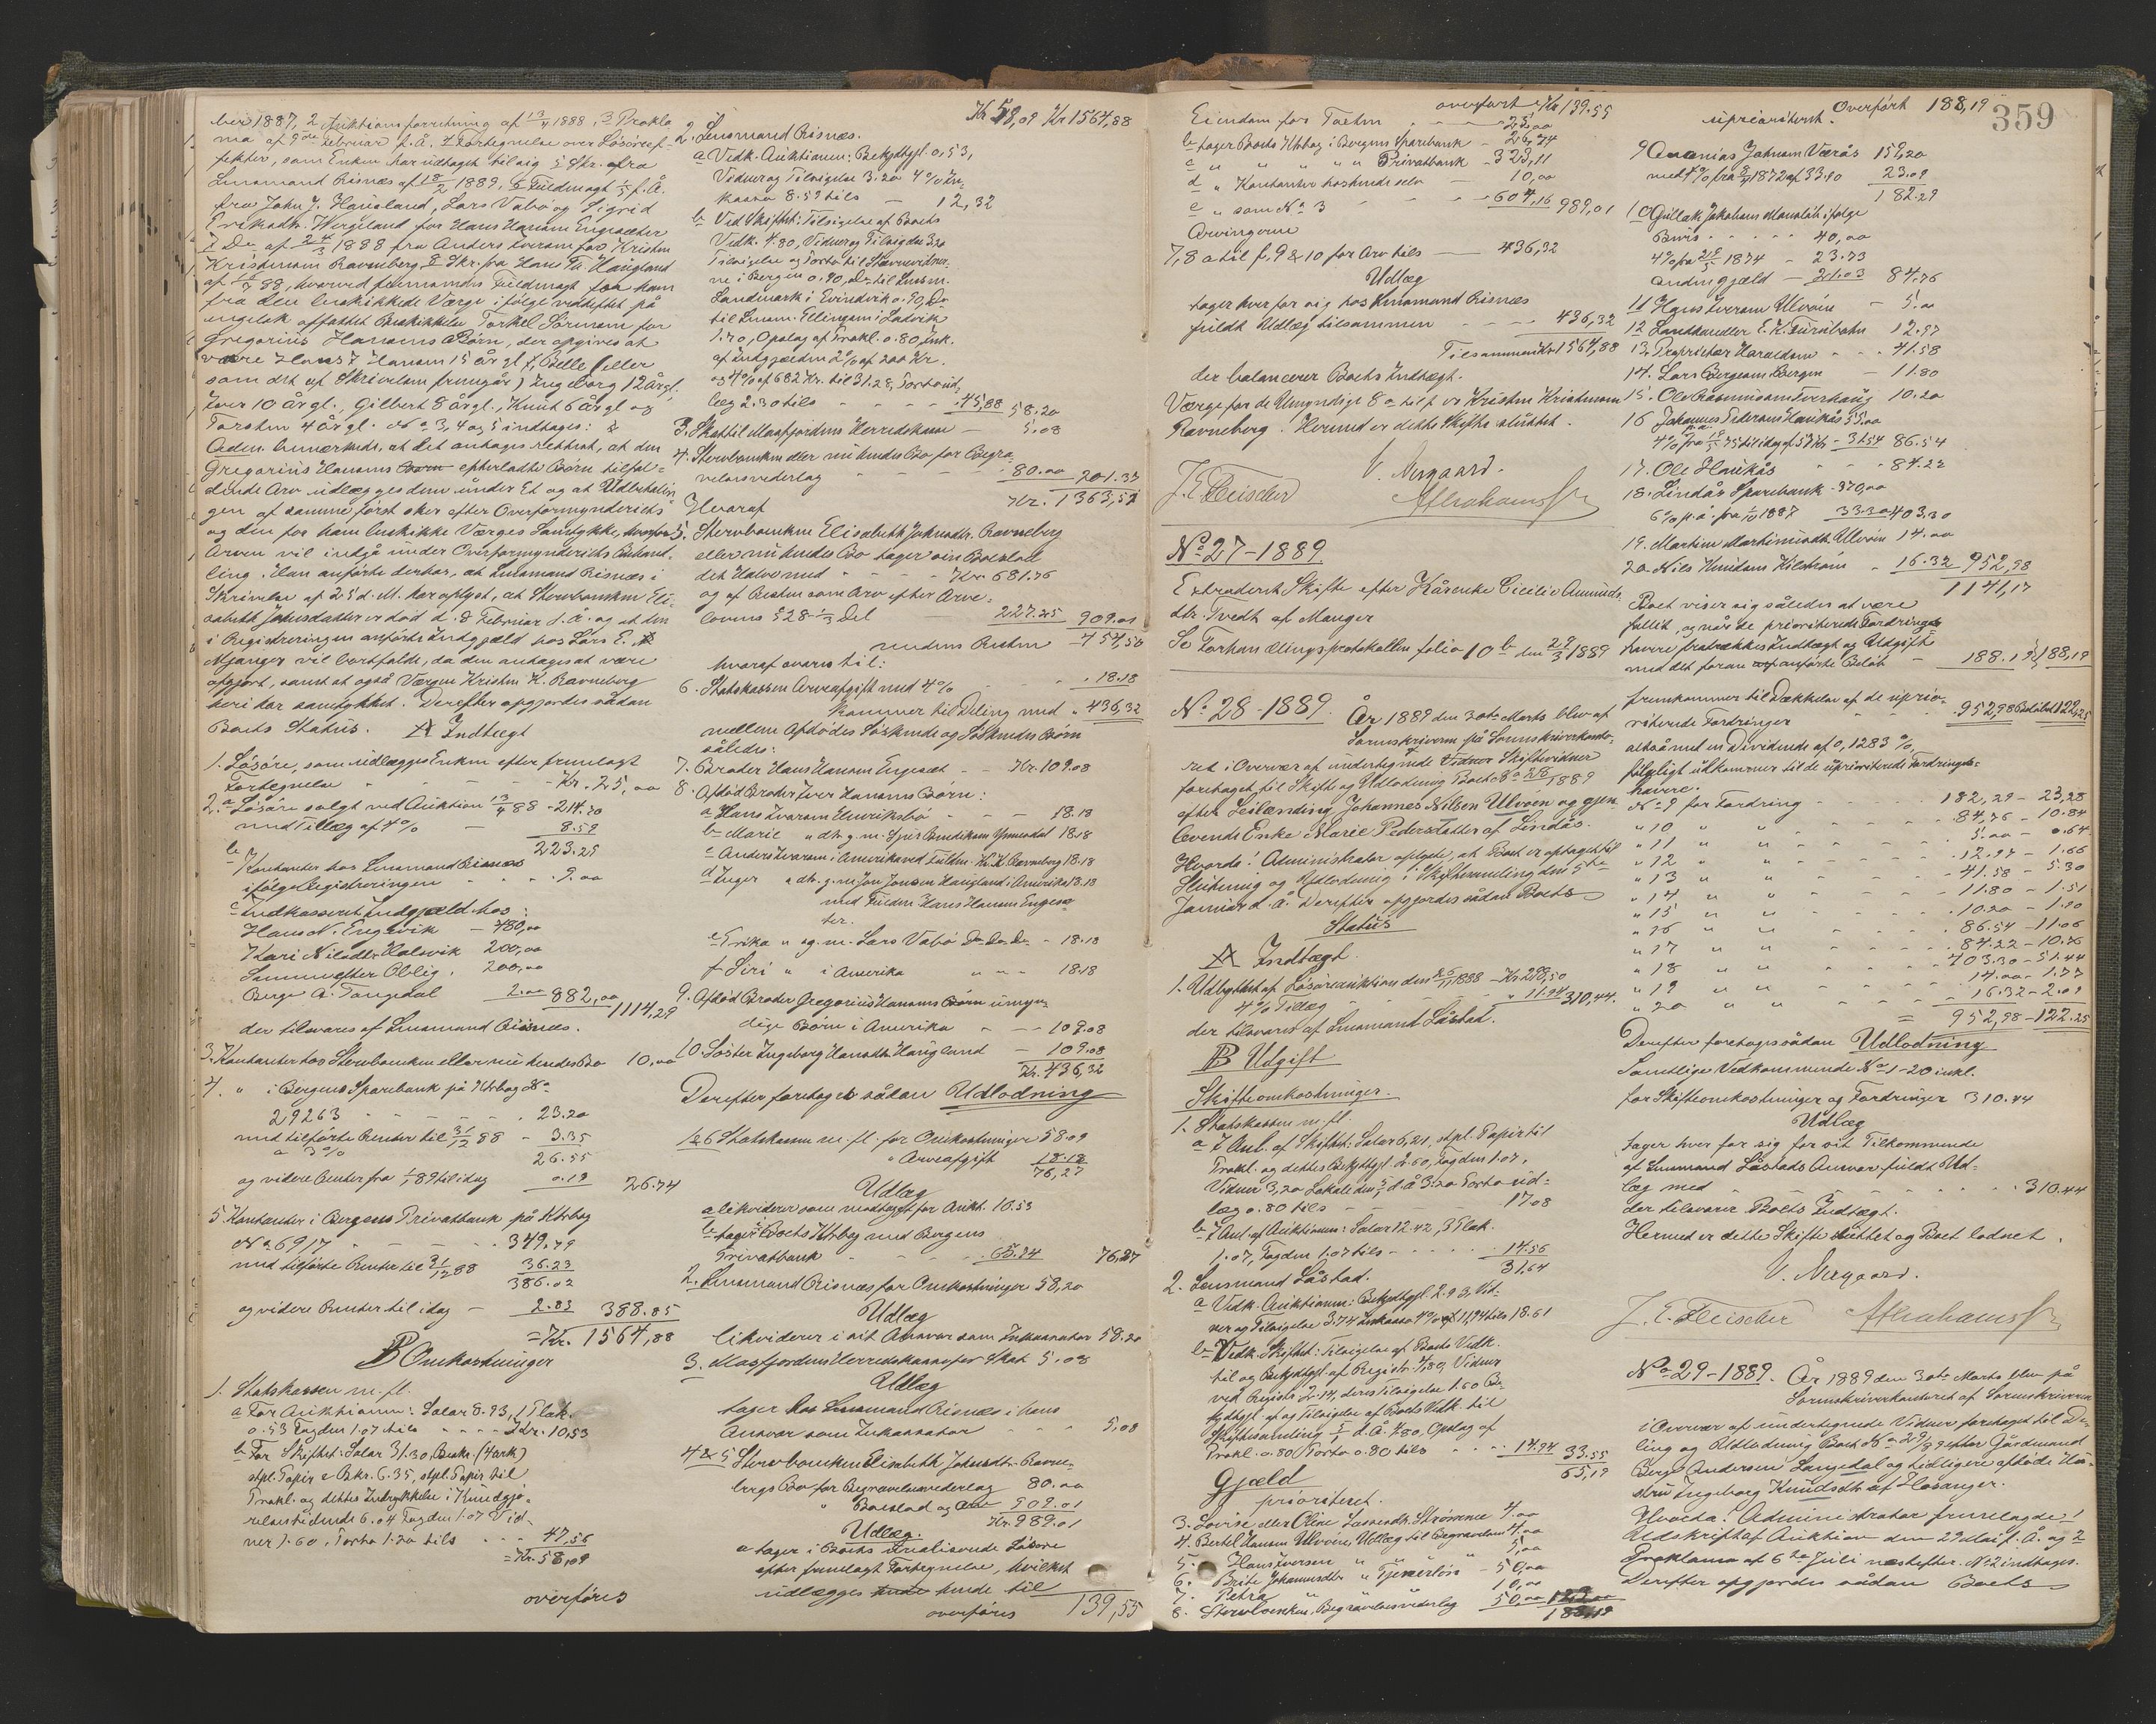 ber 1887, 2 Auktionsforretning af 13/4 1888, 3 Prokla
ma af 9de Februar f. Å. 4 Fortegnelse over Lösöreef-
fekter, som Enken har udtaget til sig 5 Skr. fra
Lensmand Risnæs af 18/2 1889, 6 Fuldmagt f. Å.
fra John J. Haugland, Lars Vabö og Sigrid
for Hans Hansen Engesæter
7 Do af 24/3 1888 fra Anders Iversen for Kristen
Kristensen Ravneberg 8 Skr. fra Hans Haugland
af 88, hvorved Fuldmagt for ham
fra den beskikkede Værge ifölge vedheftet på
engelsk affattet Beskikkelse Torkel Sörensen for
Gregorius Hansens Börn, der opgives at
være Hans Hansen 15 år gl., Belle (eller
som det af Skrivelsen fremgår) Ingeborg 12 år gl.,
Iver 10 år gl., Gilbert 8 år gl., Knut 6 år gl og
Torsten 4 år gl. No 2, 3, 4 og 5 indtages:
Aden. bemærkede, at det antages rettest, at den
Gregorius Hansens efterladte Börn tilfal-
dende Arv udlægges dem under Et og at Udbetalin
gen af samme först sker efter Overformynderiets
og den for ham beskikke Værges Samtykke, hvorfor
Arven vil indgå under Overformynderiets Behand-
ling. Han anförte derhos, at Lensmand Risnæs i
Skrivelse af 25 d. M. har oplyst, at Stervboenken Eli-
sabeth Johnsdatter er död d. 8 Februar d. Å. og at den
i Registreringen anförte Indgjæld hos Lars E.
Mjanger vil bortfalde, da den antages at være
opgjort, samt at også Værgen Kristen K. Ravneberg
heri har samtykket. Derefter opgjordes sådan
Boets Status. A Indtægt
1. Lösöre, som udlægges Enken efter fremlagt
Fortegnelse - - - Kr. 25,00
2. a Lösöre solgt ved Auktion 13/4 88 - 214.70
med Tillæg af 4% - 8.59
223.29
b Kontanter hos Lensmand Risnæs
ifölge Registreringen - - 9.00
c Indkasseret Indgjæld hos:
Hans N. Engevik - 480,00
Kari Nilsdtr. Halsvik 200,00
Samme efter Oblig. 200,00
Berge A. Tangedal 2.00 882,00
1114,29
der tilsvares af Lensmand Risnæs.
3. Kontanter hos Stervboenken eller nu hendes Bo 10,00
4. " i Bergens Sparebank på Ktrbog No
29263 - - - 23.20
med tilförte Renter til 31/12 88 - 3.35
a 3% 26.55
og videre Renter fra 1/1 89 til idag 0.19 26.74
5. Kontanter i Bergens Privatbank på Ktrbog
No 6917 - - - 349.79
med tilförte Renter til 31/12 88 36.23
386.02
og videre Renter til idag - 2.83 388.85
= Kr. 1564,88
B Omkostninger
1. Statskassen m. fl.
a For Auktionen: Salar 8.93, 1 Plak.
0.53 Fogden 1.07 tils - - - Kr. 10,53
b For Skiftet: Salar 31.30,
stpl. Papir 6.35, stpl. Papir til
Prokl. og dettes Indrykkelse i Kundgjö-
relsestidende 6.04 Fogden 1.07 Vid-
ner 1.60, Porto 1.20 tils - - 47.56
= Kr. 58,09
overföres
Kr. 58,09 Kr 1564,88
2. Lensmand Risnæs.
a Vedk. Auktionen: Bekjdtgjl. 0,53,
Vidner og Tilsigelse 3.20 4% In-
kasso 8.59 tils - 12,32
b Ved Skiftet: Tilsigelse af Boets
Vedk. 4.80, Vidner og Tilsig. 3.20
Tilsigelse og Porto til Stævnevidner-
ne i Bergen 0.90, Do til Lensm.
Landmark i Evindvik 0.90, Do
til Lensm. Ellingsen i Ladvik
1.70, Opslag af Prokl. 0.80, Ink.
af Indgjælden 2% af 200 Kr.
og 4% af 682 Kr. til 31.28, Portoud-
læg 2.30 tils - - - 45,88 58.20
3. Skat til Masfjordens Herredskasse - 5.08
4. Stervboenken eller nu hendes Bo for Begra-
velsesvederlag - - - 80.00 201.37
Kr. 1363,51
Heraf
5. Stervboenken Elisabeth Johnsdtr. Ravneberg
eller nu hendes Bo tager sin Boeslod
det Halve med - - - Kr. 681.76
og af Resten som Arv efter Arve-
lovens § 28 1/3 Del 227.25 909.01
medens Resten 454,50
hvoraf svares til:
6. Statskassen Arveafgift med 4% - - 18.18
kommer til Deling med 436,32
mellem Afdödes Söskende og Söskendes Börn
således:
7. Broder Hans Hansen Engesæt - - Kr. 109.08
8. Afdöd Broder Iver Hansens Börn:
a Hans Iversen Henriksbö - - - 18.18
b Marie " dtr. g. m. Bendiksen Ynnesdal 18.18
c Anders Iversen i Amerika ved Fuldm. Kr. K. Ravneberg 18.18
d Inger " dtr. g. m. Jon Jonsen Haugland i Amerika 18.18
ved Fuldm. Hans Hansen Engesæ-
ter.
e Erika " og. m. Lars Vabö Do Do Do - 18.18
f Siri " i Amerika " " " 18.18
9. Afdöd Broder Gregorius Hansens Börn umyn-
dige Börn i Amerika - - - 109.08
10. Söster Ingeborg Hansdtr. Haugland - 109.08
Kr. 436,32
Derefter foretoges sådan Udlodning
1 & 6 Statskassen m. fl. for Omkostninger 58.09
" Arveafgift 18.18
76,27
Udlæg
a likviderer som modtaget for Aukt. 10.53
b tager Boets Ktrbog med Bergens
Privatbank - - - 65.74 76,27
2. Lensmand Risnæs for Omkostninger 58,20
Udlæg
likviderer i sit Ansvar som Inkassator 58.20
3. Masfjordens Herredskasse for Skat 5,08
Udlæg
tager hos Lensmand Risnæs i hans
Ansvar som Inkassator - - 5,08
4 & 5 Stervboenken Elisabeth Johnsdtr. Ravne-
bergs Bo for Begravelsesvederlag 80.00
" Boeslod og Arv 909.01
Kr. 989.01
Udlæg.
a tager i Boets urealiserede Lösöre
efter fremlagt Fortegnelse, hvilket
udlægges hende til
overföres 139,55
overfört Kr 139.55
Eiendom for Taxten - - 25,00
b tager Boets Ktrbog i Bergens Sparebank - 26,74
c " " " " " Privatbank - 323,11
d " Kontanter hos hende selv - 10,00
e " som No 3 - - - 604,16 989,01
Arvingerne
7, 8 a til f, 9 & 10 for Arv tils - 436,32
Udlæg
tager hver for sig hos Lensmand Risnæs
fuldt Udlæg tilsammen - - - 436,32
Tilsammen Kr 1564,88
der balancerer Boets Indtægt.
Værge for de Umyndige 8 a til f er Kristen Kristensen
Ravneberg. Hermed er dette Skifte sluttet.
V. Nergaard.
J. E. Fleischer Abrahams
No 27-1889.
Extraderet Skifte efter Kårenke Cicilie Amunds-
dtr. Tvedt af Manger
Se Forhandlingsprotokollen folio 10 b den 29/3 1889
No 28-1889. År 1889 den 30te Marts blev af
Sorenskriveren på Sorenskriverkonto-
ret i Overvær af undertegnede Skiftevidner
foretaget til Skifte og Udlodning Boet No 28/1889
efter Leilænding Johannes Nilsen Ulvöen og gjen-
levende Enke Marie Pedersdatter af Lindås.
Hvorda: Administrator oplyste, at Boet er optaget til
Slutning og Udlodning i Skiftesamling den 5te
Januar d. Å. Derefter opgjordes sådan Boets
Status
A Indtægt.
1. Udbyttet af Lösöreauktion den 1888 - Kr 298,50
4% Tillæg - - - " 11.94 310,44.
der tilsvares af Lensmand Låstad.
B Udgift
Skifteomkostninger.
1. Statskassen m. fl.
a I Anl. af Skiftet: Salar 6,21, stpl. Papir til
Prokl. og dettes Bekjdtgjl. 2.60, Fogden 1.07,
Vidner 3,20 Lokale den d. å 3.20 Porto ud-
læg 0.80 tils - - - 17.08
b I Anl. af Auktionen: Salar 12.42, 3 Plak.
1.07, Fogden 1.07 tils - - - 14.56
31.64
2. Lensmand Låstad.
a Vedk. Auktionen: Bekjdtgjl. 2.93, Vid-
ner og Tilsigelse 3.74 Inkasso 4% 11.94 tils 18.61
b Vedk. Skiftet: Tilsigelse af Boets Vedk.
til og Bekjdtgjl. af Registr. 4,80, Vidner
ved Registr. 2.14, deres Tilsigelse 1.60 Be-
kjdtgjl. af og Tilsigelse af Boets Vedk. til
Skiftesamling d. Å. 4.80, Opslag af
Prokl. 0.80 Porto 0.80 tils - - - 14.94 33.55
65,19
Gjæld
prioriteret.
3. Lovise eller Oline Lassesdtr. Strömme 4.00
4. Bertel Hansen Ulvöen, Udlæg til Begravelsen 4.00
5. Hans Iversen " " " " 5,00
6. Brite Johannesdtr. " Tjenerlön - 50,00
7. Petra " " 10,00
8. Stervboenken, Begravelsesvederlag 50,00 123,00
188,19
359
Overfört 188,19
uprioriteret.
9 Ananias Johnsen Værås 159,20
med 4% fra 1872 af 33.90 23.09
182.29
10 Gullak Jakobsens Mandslöt ifölge
Bevis - - - - 40,00
4% fra 1874 - 23.73
anden gjæld - 21.03 84.76
11 Hans Iversen Ulvöen - 5.00
12 Landhandler E. K. Furubotn 12.97
13. Proprietær Haraldsen - - 41.58
14. Lars Bergesen, Bergen - 11.80
15. Ole Rasmussen Tverhaug 10.20
16 Johannes Pedersen Haukås 55,00
4% fra 75 til idag af 57 Kr - 31.54 86.54
17. Ole Haukås - - - 84.22
18. Lindås Sparebank - 370,00
6% p. a. fra 1887 33.30 403.30
19. Martine Martinusdtr. Ulvöen 14.00
20. Nils Knudsens Kilström - 16.32 952,98
1141,17
Boet viser sig således at være
fallit, og når de prioriterede Fordrings-
havere fratrækkes Indtægt og Udgift
med det foran anförte Belöb - 188.19 188,19
fremkommer til Dækkelse af de uprio-
riterede Fordringer - - - 952,98 Belöbet 122,25
altså med en Dividende af 0,1283 %,
fölgeligt udkommer til de uprioriterede Fordrings-
havere.
No 9 for Fordring - - - 182,29 - 23,28
" 10 " " - - - 84,76 - 10.84
" 11 " " - - - 5.00 - 0.64
" 12 " " - - - 12.97 - 1.66
" 13 " " - - - 41.58 - 5.30
" 14 " " - - - 11.80 - 1.51
" 15 " " - - - 10.20 - 1.30
" 16 " " - - - 86.54 - 11.06
" 17 " " - - - 84.22 - 10.76
" 18 " " - - - 403.30 - 51.44
" 19 " " - - - 14.00 - 1.77
" 20 " " - - - 16.32 - 2.09
= 952,98 - 122.25
Derefter foretoges sådan Udlodning
Samtlige Vedkommende No 1-20 inkl.
for Skifteomkostninger og Fordringer 310.44
Udlæg
tager hver for sig for sit Tilkommende
af Lensmand Låstads Ansvar fuldt Ud-
læg med - - - - 310.44
der tilsvarer Boets Indtægt.
Hermed er dette Skifte sluttet og Boet lodnet.
V. Nergaard.
J. E. Fleischer Abrahams
No 29-1889. År 1889 den 30te Marts blev på
Sorenskriverkontoret af Sorenskriveren
i Overvær af undertegnede Vidner foretaget til De-
ling og Udlodning Boet No 29/89 efter Gårdmand
Berge Andersen Tangedal og tidligere afdöde Hu-
stru Ingeborg Knudsdtr. af Hosanger.
Hvorda: Administrator fremlagde 1
Udskrift af Auktion den 29 Mai f. Å. og 2
Proklama af 6te Juli næstefter. No 2 indtages.
Derefter opgjordes sådan Boets